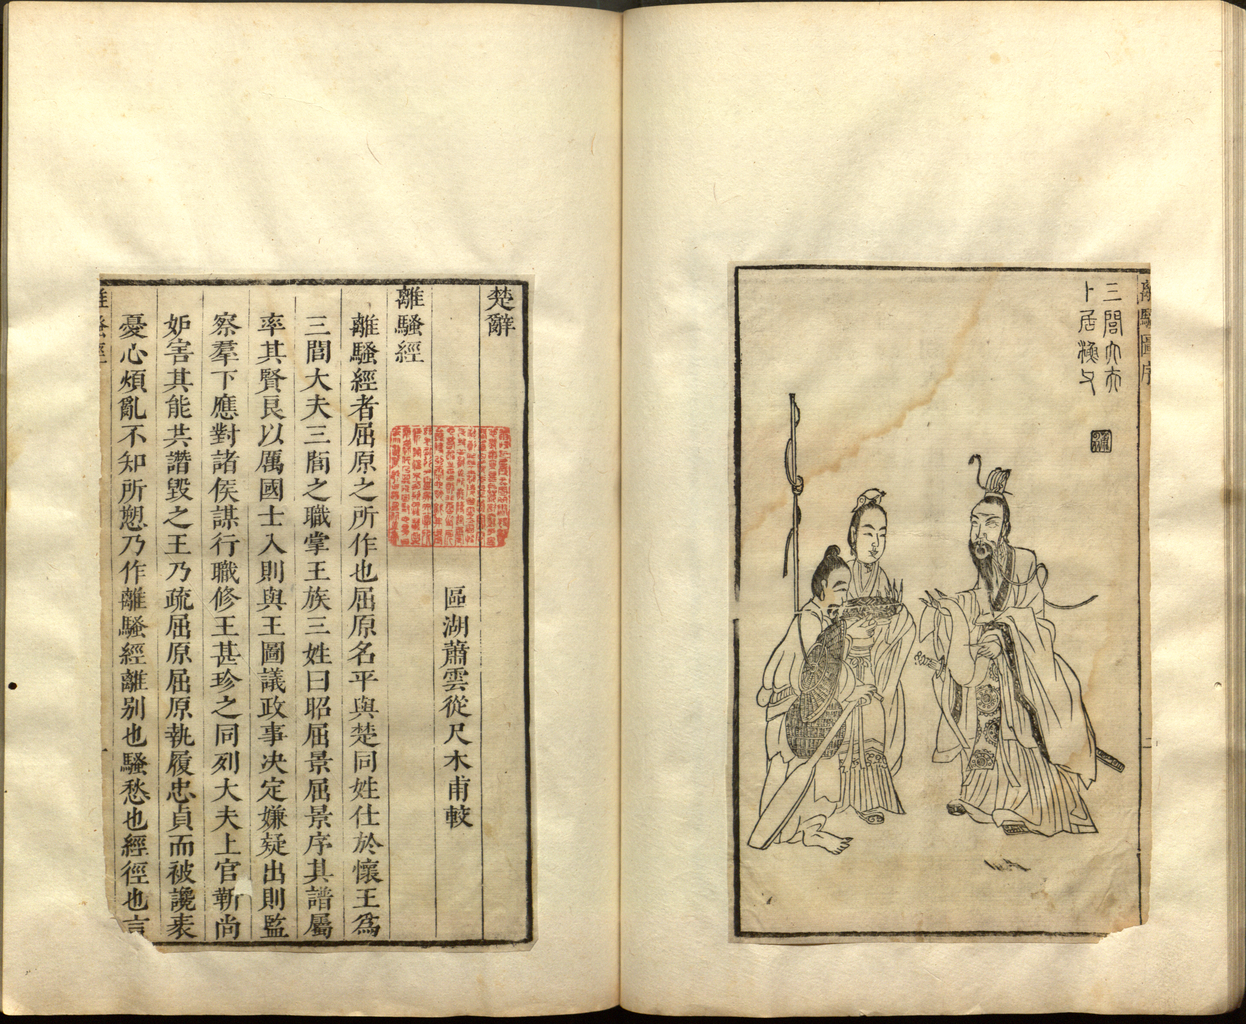 離騷圖序
三閭大夫
卜居漁父
二
楚辭
區湖蕭雲從尺木甫較
離騷經
離騷經者屈原之所作也屈原名平與楚同姓仕於懷王爲
三閭大夫三閭之職掌王族三姓曰昭屈景屈景序其譜屬
率其賢良以厲國士入則與王圖議政事決定嫌疑出則監
察羣下應對諸侯謀行職修王甚珍之同列大夫上官靳尚
妒害其能共譖毀之王乃疏屈原屈原執履忠貞而被讒衺
憂心煩亂不知所愬乃作離騷經離別也騷愁也經徑也言
離騷經
一